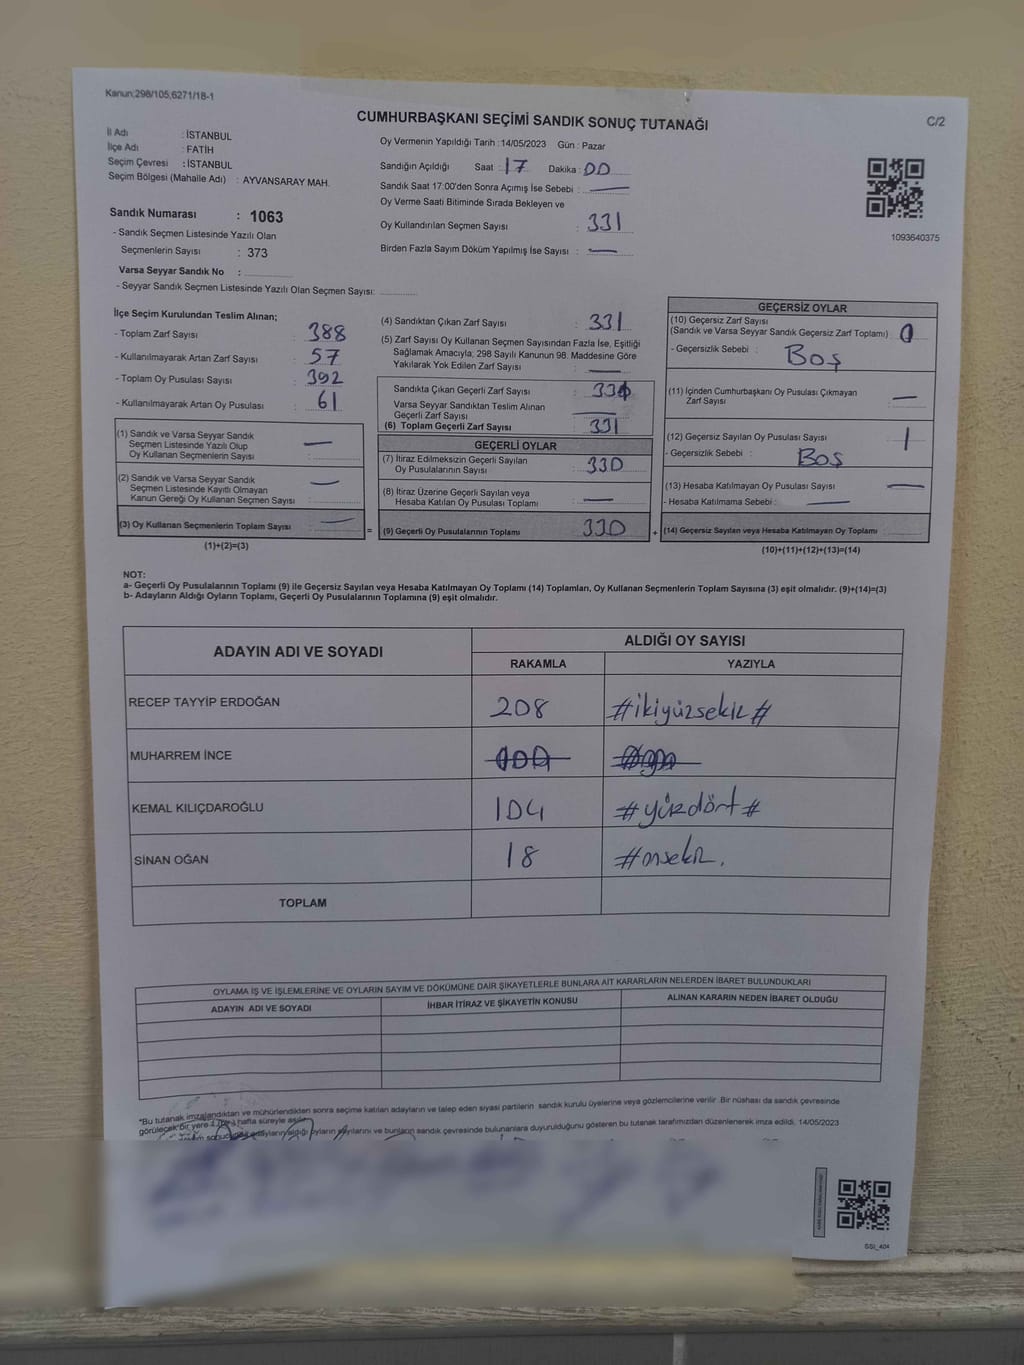 Kanun:298/105;6271/18-1
CUMHURBAŞKANI SEÇİMİ SANDIK SONUÇ TUTANAĞI
C/2
İl Adı : İSTANBUL
İlçe Adı : FATİH
Seçim Çevresi : İSTANBUL
Seçim Bölgesi (Mahalle Adı) : AYVANSARAY MAH.
Sandık Numarası : 1063
- Sandık Seçmen Listesinde Yazılı Olan
Seçmenlerin Sayısı : 373
Varsa Seyyar Sandık No :
- Seyyar Sandık Seçmen Listesinde Yazılı Olan Seçmen Sayısı:
Oy Vermenin Yapıldığı Tarih : 14/05/2023 Gün : Pazar
Sandığın Açıldığı Saat : 17 Dakika : 00
Sandık Saat 17:00'den Sonra Açımış İse Sebebi :
Oy Verme Saati Bitiminde Sırada Bekleyen ve
Oy Kullandırılan Seçmen Sayısı : 331
Birden Fazla Sayım Döküm Yapılmış İse Sayısı :
1093640375
İlçe Seçim Kurulundan Teslim Alınan;
- Toplam Zarf Sayısı : 388
- Kullanılmayarak Artan Zarf Sayısı : 57
- Toplam Oy Pusulası Sayısı : 392
- Kullanılmayarak Artan Oy Pusulası : 61
(1) Sandık ve Varsa Seyyar Sandık
Seçmen Listesinde Yazılı Olup
Oy Kullanan Seçmenlerin Sayısı :
(2) Sandık ve Varsa Seyyar Sandık
Seçmen Listesinde Kayıtlı Olmayan
Kanun Gereği Oy Kullanan Seçmen Sayısı :
(3) Oy Kullanan Seçmenlerin Toplam Sayısı
(1)+(2)=(3)
=
(4) Sandıktan Çıkan Zarf Sayısı : 331
(5) Zarf Sayısı Oy Kullanan Seçmen Sayısından Fazla İse, Eşitliği
Sağlamak Amacıyla; 298 Sayılı Kanunun 98. Maddesine Göre
Yakılarak Yok Edilen Zarf Sayısı :
Sandıkta Çıkan Geçerli Zarf Sayısı :
Varsa Seyyar Sandıktan Teslim Alınan
Geçerli Zarf Sayısı
(6) Toplam Geçerli Zarf Sayısı : 331
GEÇERLİ OYLAR
(7) İtiraz Edilmeksizin Geçerli Sayılan
Oy Pusulalarının Sayısı : 330
(8) İtiraz Üzerine Geçerli Sayılan veya
Hesaba Katılan Oy Pusulası Toplamı :
(9) Geçerli Oy Pusulalarının Toplamı 330
+
GEÇERSİZ OYLAR
(10) Geçersiz Zarf Sayısı
(Sandık ve Varsa Seyyar Sandık Geçersiz Zarf Toplamı) : 0
- Geçersizlik Sebebi : Boş
(11) İçinden Cumhurbaşkanı Oy Pusulası Çıkmayan
Zarf Sayısı :
(12) Geçersiz Sayılan Oy Pusulası Sayısı : 1
- Geçersizlik Sebebi : Boş
(13) Hesaba Katılmayan Oy Pusulası Sayısı :
- Hesaba Katılmama Sebebi :
(14) Geçersiz Sayılan veya Hesaba Katılmayan Oy Toplamı
(10)+(11)+(12)+(13)=(14)
NOT:
a- Geçerli Oy Pusulalarının Toplamı (9) ile Geçersiz Sayılan veya Hesaba Katılmayan Oy Toplamı (14) Toplamları, Oy Kullanan Seçmenlerin Toplam Sayısına (3) eşit olmalıdır. (9)+(14)=(3)
b- Adayların Aldığı Oyların Toplamı, Geçerli Oy Pusulalarının Toplamına (9) eşit olmalıdır.
ADAYIN ADI VE SOYADI
ALDIĞI OY SAYISI
RAKAMLA YAZIYLA
RECEP TAYYİP ERDOĞAN 208 #ikiyüzsekiz#
MUHARREM İNCE
KEMAL KILIÇDAROĞLU 104 #yüzdört#
SİNAN OĞAN 18 #onsekiz.
TOPLAM
OYLAMA İŞ VE İŞLEMLERİNE VE OYLARIN SAYIM VE DÖKÜMÜNE DAİR ŞİKAYETLERLE BUNLARA AİT KARARLARIN NELERDEN İBARET BULUNDUKLARI
ADAYIN ADI VE SOYADI İHBAR İTİRAZ VE ŞİKAYETİN KONUSU ALINAN KARARIN NEDEN İBARET OLDUĞU
*Bu tutanak imzalandıktan ve mühürlendikten sonra seçime katılan adayların ve talep eden siyasi partilerin sandık kurulu üyelerine veya gözlemcilerine verilir. Bir nüshası da sandık çevresinde
görülecek bir yere 1 (bir) hafta süreyle asılır.
oyların sayılarını ve bunların sandık çevresinde bulunanlara duyurulduğunu gösteren bu tutanak tarafımızdan düzenlenerek imza edildi. 14/05/2023
SSİ_404